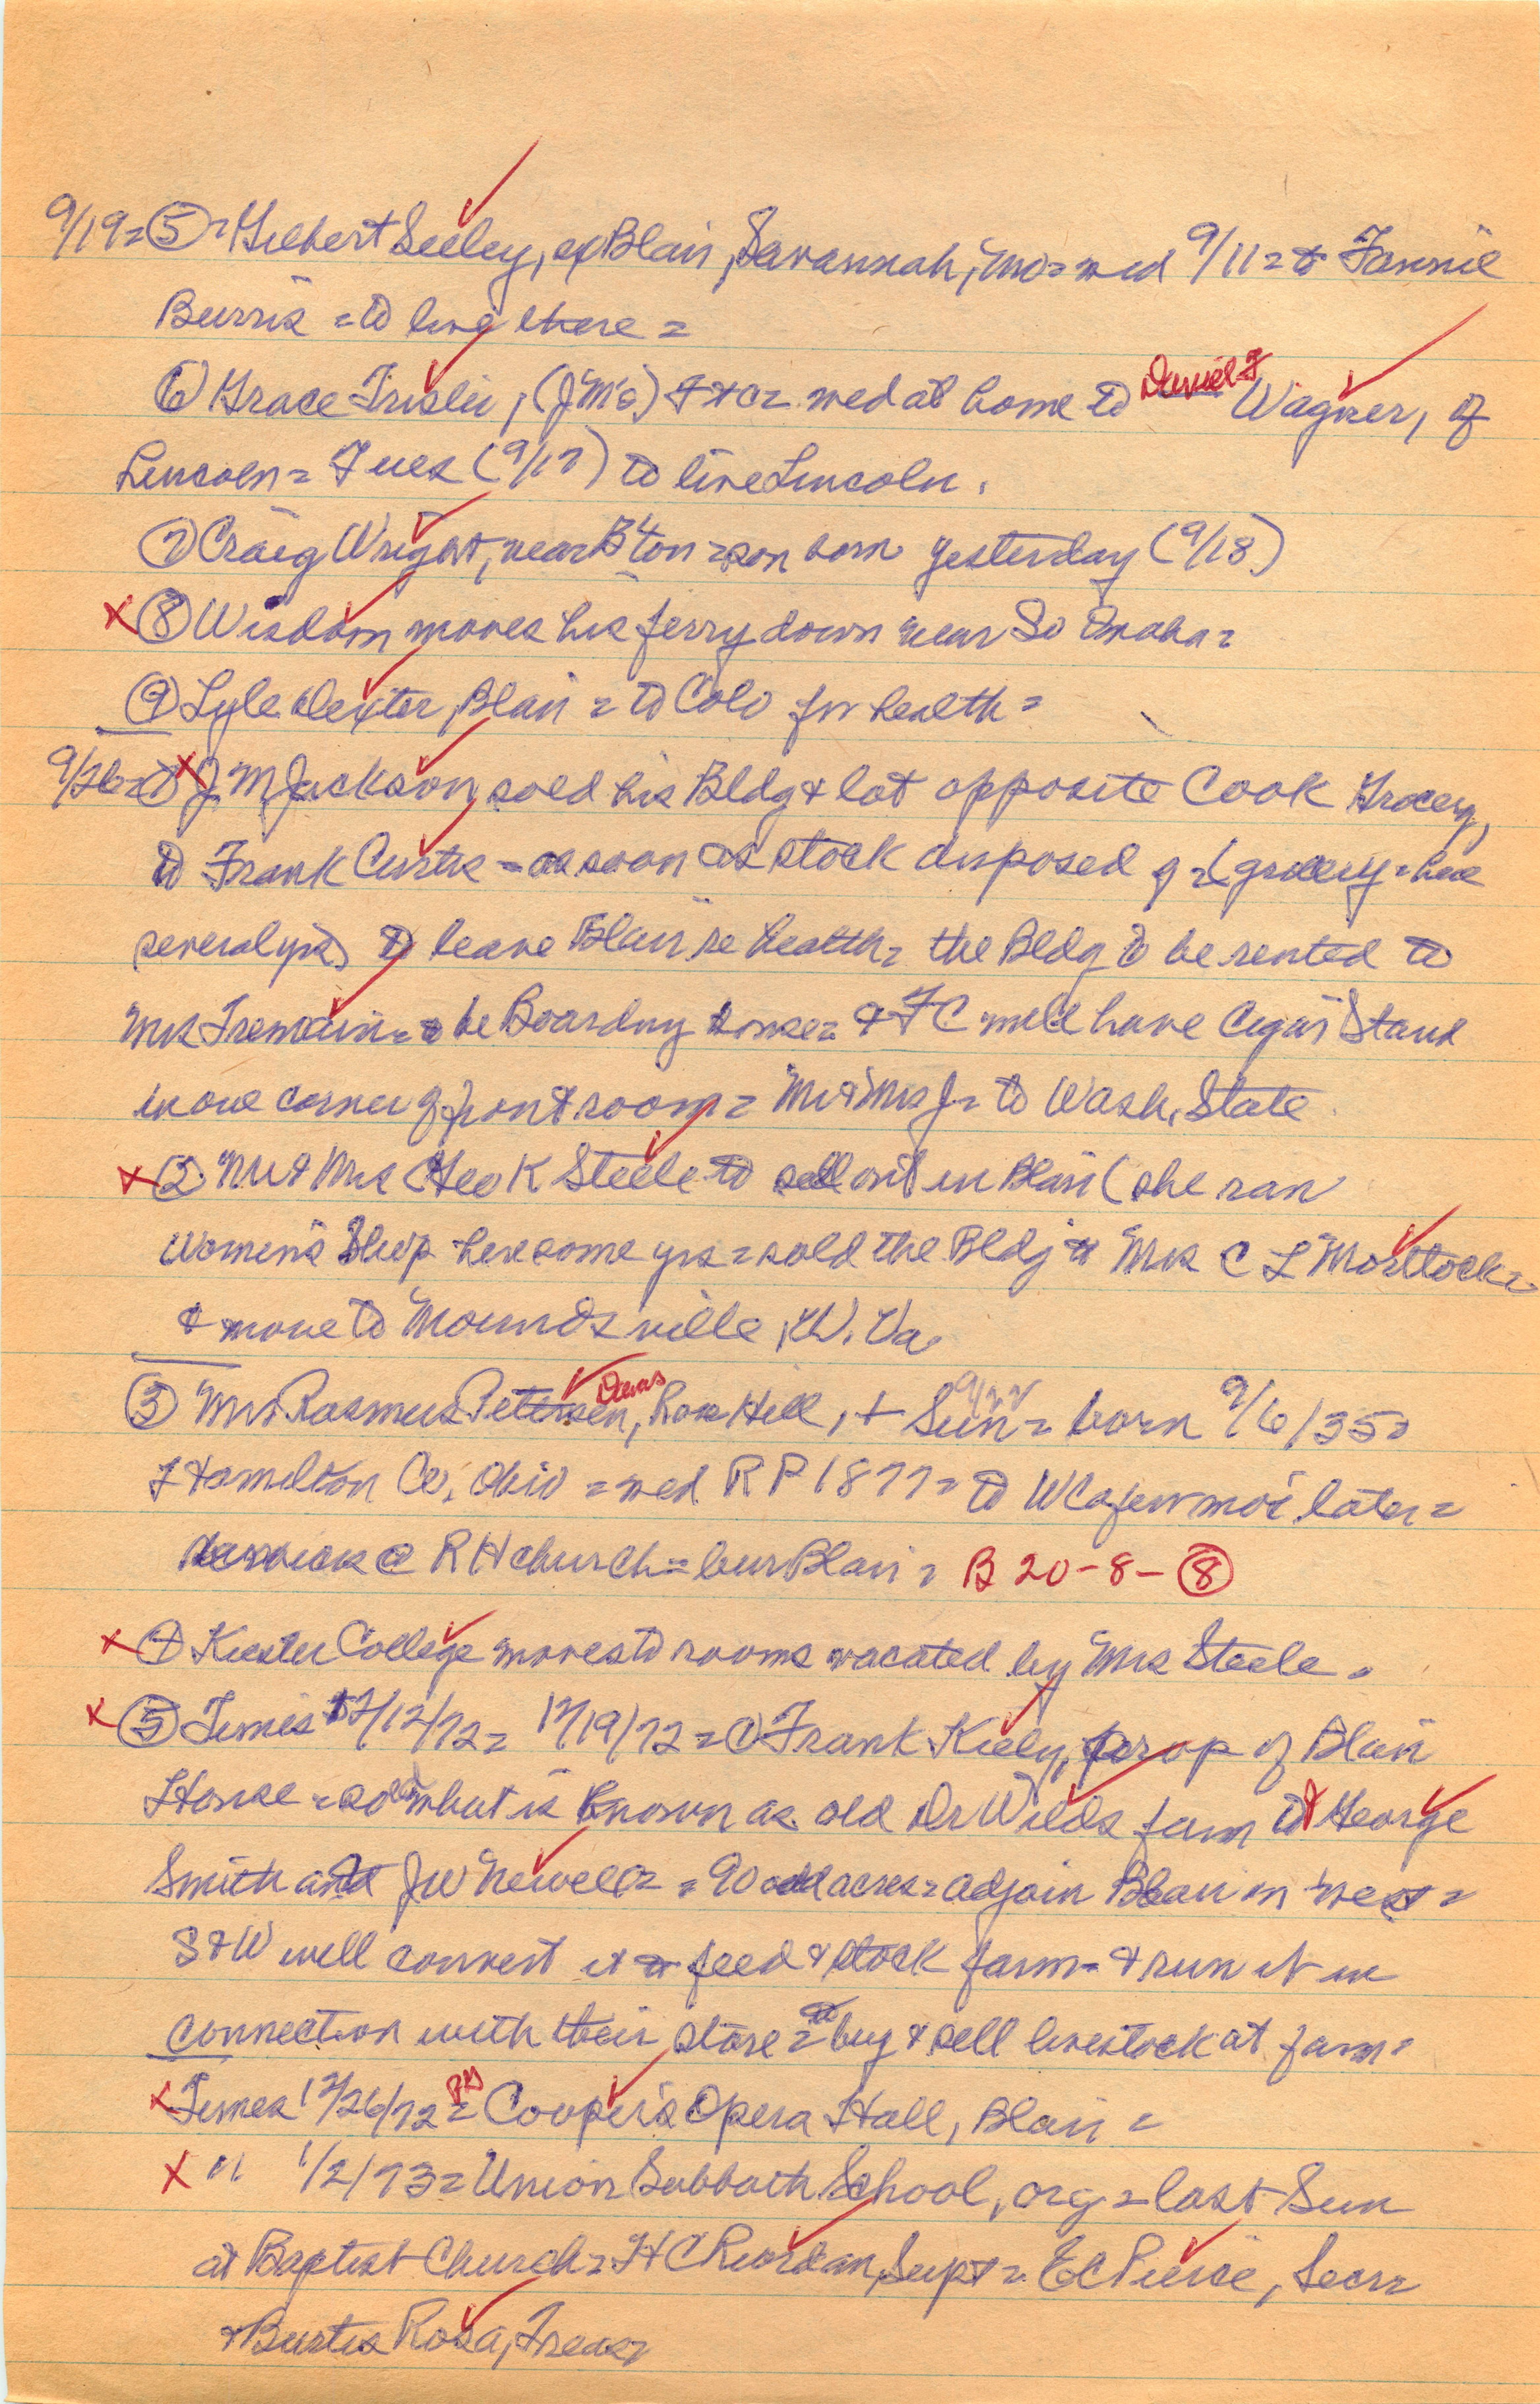 9/19= ⑤= Gilbert Seeley, ex Blair, Savannah, Mo= wed 9/11= to Fannie
Burris = to live there =
⑥ Grace Trisler, (J M's) = wed at home to Daniel F Wagner, of
Lincoln= Tues (9/17) to live Lincoln.
⑦ Craig Wright, near B'ton = son born yesterday (9/18)
x ⑧ Wisdom moves his ferry down near So Omaha=
⑨ Lyle Dexter, Blair = to Colo for health =
9/26= ① x J M Jackson sold his Bldg & lot opposite Cook Grocery,
to Frank Curtis = as soon as stock disposed of = (grocery = here
several yrs) to leave Blair re health= the Bldg to be rented to
Mrs Tremain= to be Boarding House= & F C will have Cigar Stand
in one corner of front room= Mr & Mrs J= to Wash, State
x ② Mr & Mrs Geo K Steele to sell out in Blair (she ran
Women's Shop here some yrs = sold the Bldg to Mrs C L Mosttock=
& move to Moundsville, W. Va.
③ Mrs Rasmus Petersen, Rose Hill, + Sun= born 9/6/35=
Hamilton Co, Ohio = wed R P 1877= to W Ca few mos later=
services @ R H church= bur Blair = B 20-8-⑧
x ④ Kiester College moves to rooms vacated by Mrs Steele.
x ⑤ Times 12/12/72= 12/19/72= ① Frank Kiely, prop of Blair
House = sold what is known as old Dr Wilds farm to George
Smith and J W Newell= = 90 odd acres= adjoin Blair on west=
S & W will convert it to feed & stock farm= & run it in
connection with their store= to buy & sell livestock at farm=
x Times 12/26/72= Cooper's Opera Hall, Blair =
x " 1/2/73= Union Sabbath School, org = last Sun
at Baptist Church= H C Riordan, Supt = E C Pierce, Secr=
& Burtis Rosa, Treas=